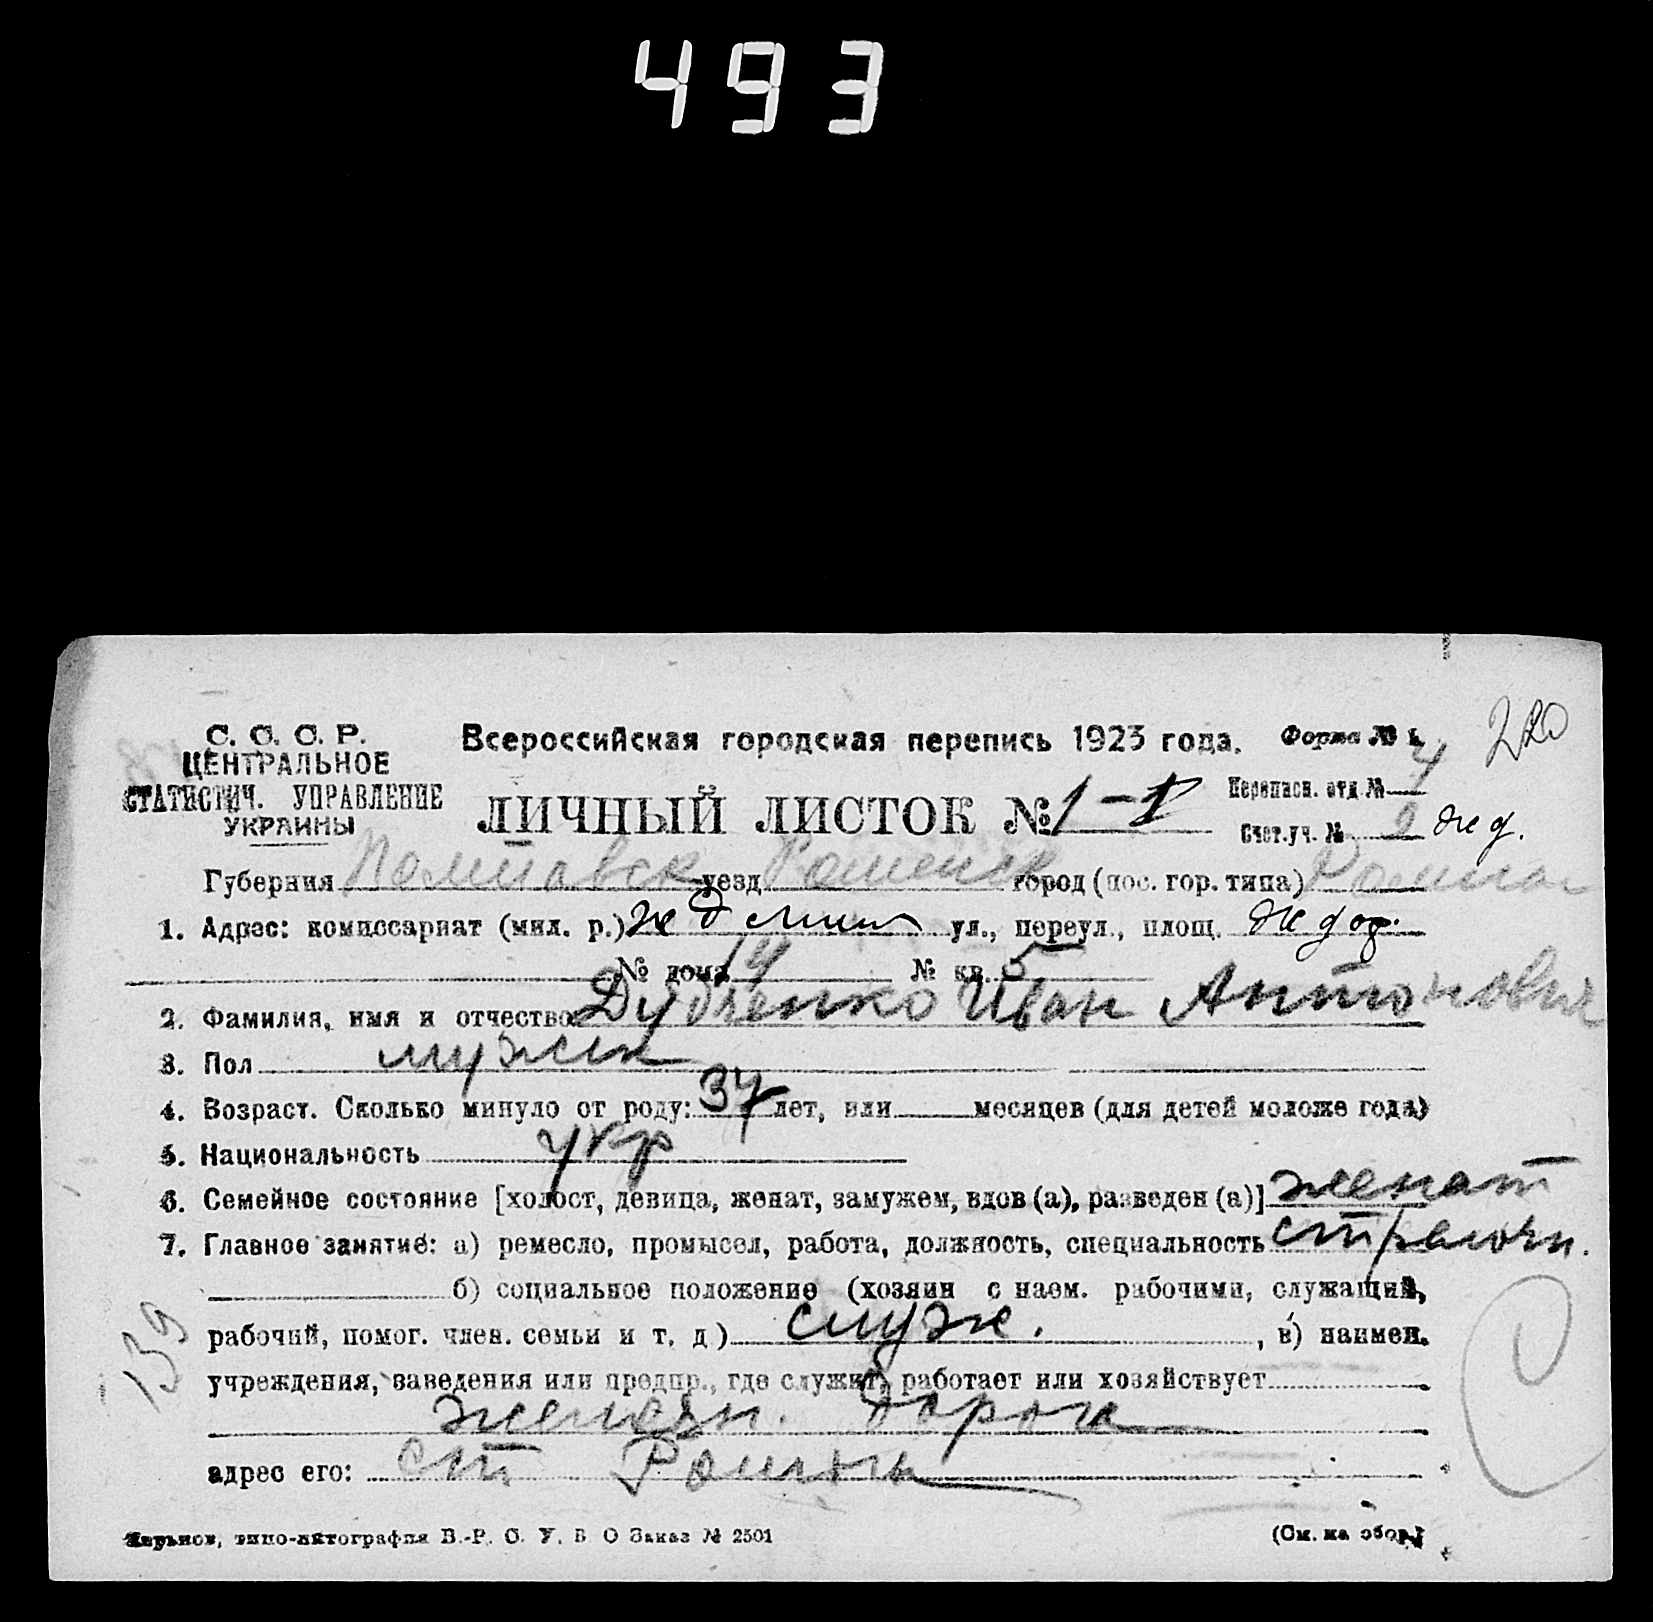 493
220
С. С. С. Р.
ЦЕНТРАЛЬНОЕ
СТАТИСТИЧ. УПРАВЛЕНИЕ
УКРАИНЫ
Всероссийская городская перепись 1923 года.
Форма № 1.
ЛИЧНЫЙ ЛИСТОК № 1-1
Переписн. отд. № 4
Счет. уч. № 2 жд.
Губерния Полтавск уезд Роменск город (пос. гор. типа) Ромны
1. Адрес: комиссариат (мил. р.) ж д ул., переул., площ. ж дор.
№ дома 14 № кв. 5
2. Фамилия, имя и отчество Дудченко Иван Антонович
3. Пол мужск
4. Возраст. Сколько минуло от роду: 37 лет, или месяцев (для детей моложе года)
5. Национальность укр
6. Семейное состояние [холост, девица, женат, замужем, вдов (а), разведен (а)] женат
7. Главное занятие: а) ремесло, промысел, работа, должность, специальность стрелочн.
б) социальное положение (хозяин с наем. рабочими, служащий,
рабочий, помог. член. семьи и т. д.) служ. , в) наимен.
учреждения, заведения или предпр., где служит, работает или хозяйствует
железн. дорога
адрес его: ст Ромны
139
Харьков, типо-литография В.-Р. С. У. В. О Заказ № 2501
(См. на обор.)